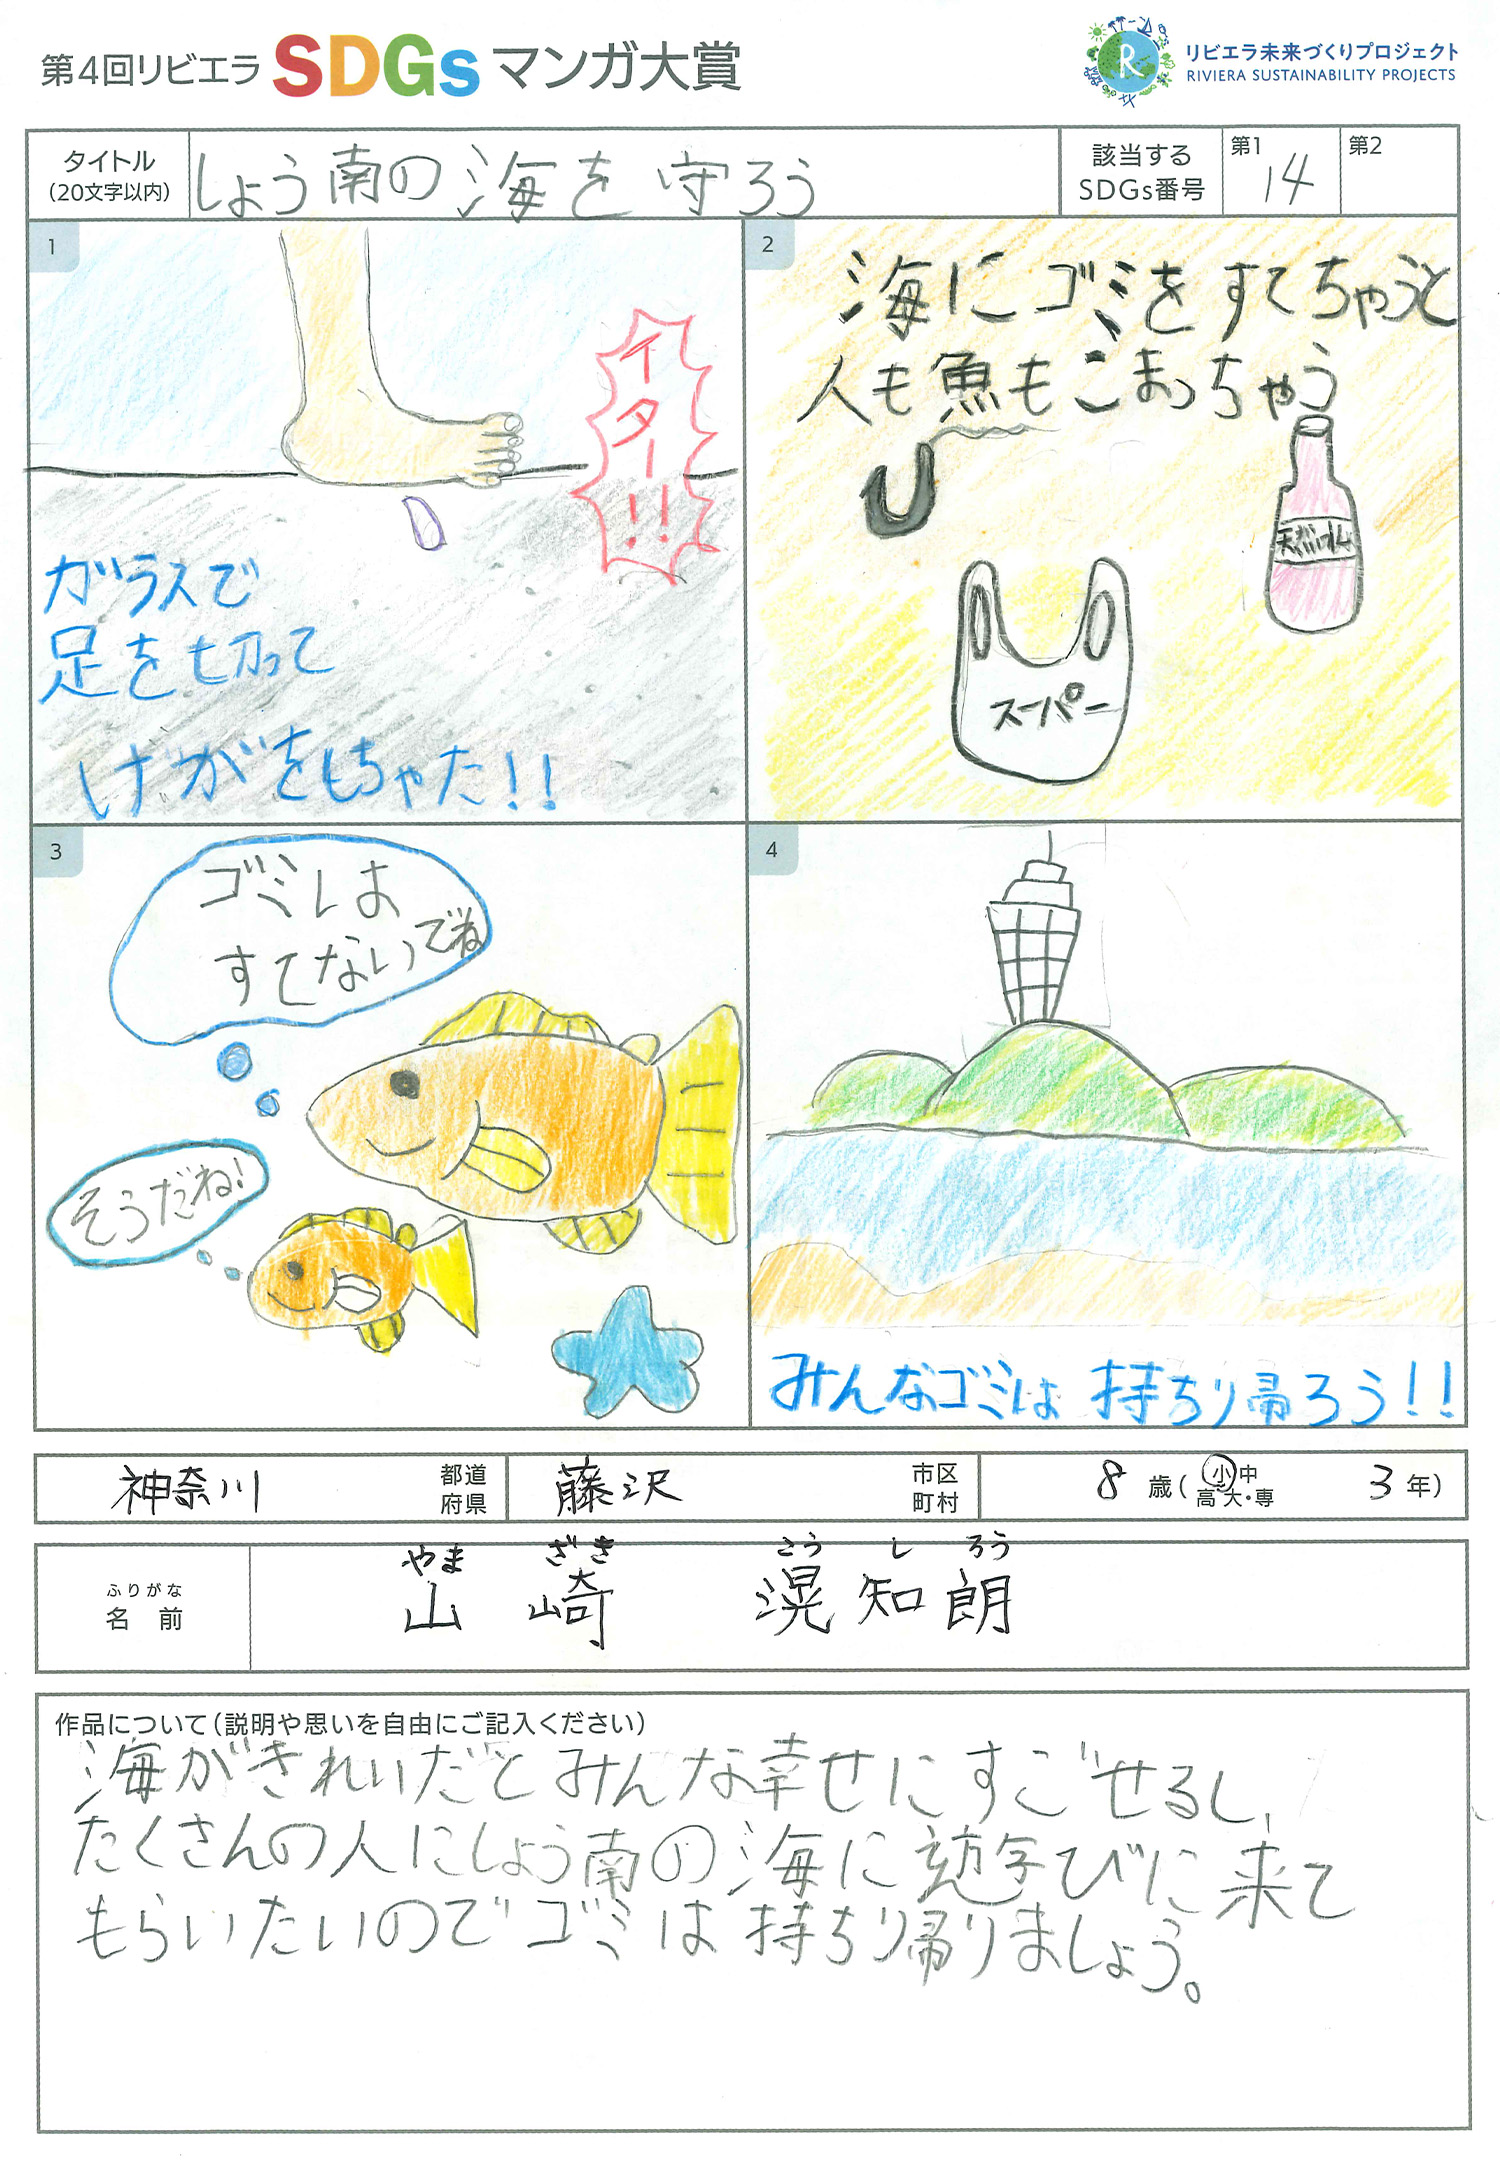 第4回リビエラ SDGs マンガ大賞
R
リビエラ未来づくりプロジェクト
RIVIERA SUSTAINABILITY PROJECTS
タイトル
(20文字以内)
しょう南の海を守ろう
該当する
SDGs番号
第1
14
第2
1
イター!!
ガラスで
足を切って
けがをしちゃた!!
2
海にゴミをすてちゃうと
人も魚もこまっちゃう
スーパー
3
ゴミは
すてないでね
そうだね!
4
みんなゴミは持ち帰ろう!!
神奈川
都道
府県
藤沢
市区
町村
8 歳(小中
高大・専
3 年)
ふりがな
名 前
やま ざき こう し ろう
山 崎 滉 知 朗
作品について(説明や思いを自由にご記入ください)
海がきれいだとみんな幸せにすごせるし、
たくさんの人にしょう南の海に遊びに来て
もらいたいのでゴミは持ち帰りましょう。